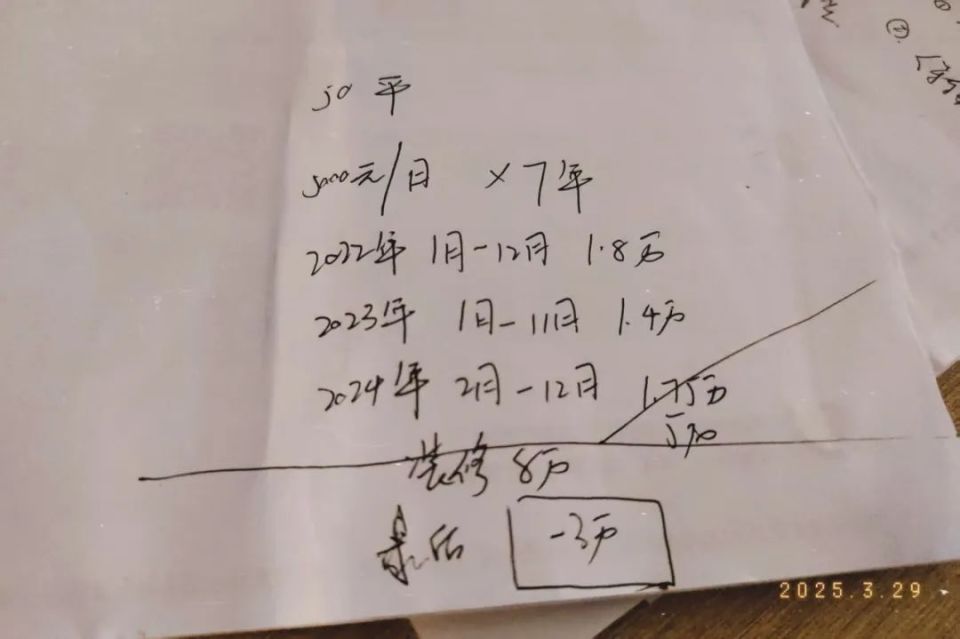 50 平
5000元/日 × 7年
2022年 1月-12月 1.8万
2023年 1月-11月 1.4万
2024年 2月-12月 1.75万
5万
装修 8万
最后 -3万
2025.3.29
②